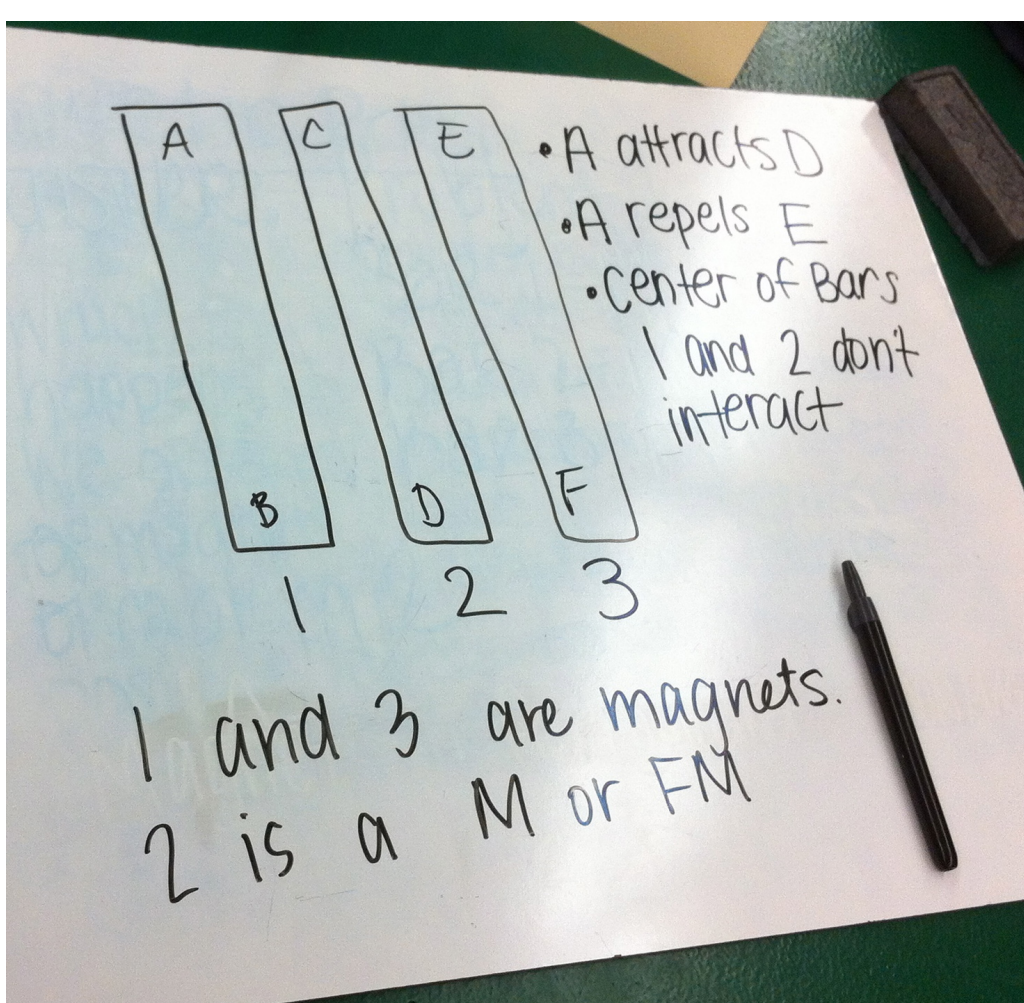 A C E
B D F
1 2 3
• A attracts D
• A repels E
• center of Bars
1 and 2 don't
interact
1 and 3 are magnets.
2 is a M or FM